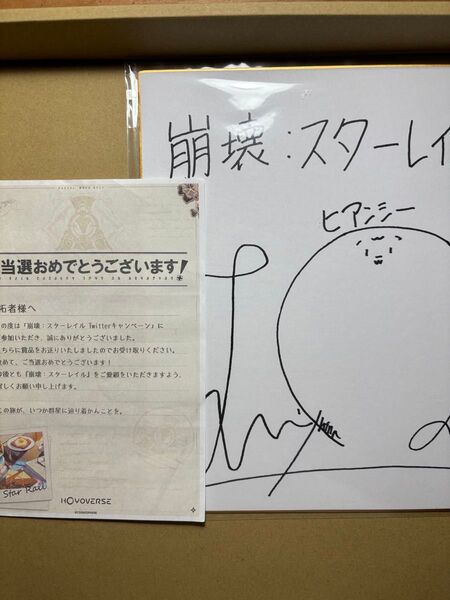 当選おめでとうございます!
拓者様へ
の度は『崩壊:スターレイル Twitterキャンペーン』に
参加いただき、誠にありがとうございました。
ちらに賞品をお送りいたしましたのでお受け取りください。
めて、ご当選おめでとうございます!
後とも『崩壊:スターレイル』をご愛顧をいただきますよう、
しくお願い申し上げます。
の旅が、いつか群星に辿り着かんことを。
Star Rail
HOYOVERSE
崩壊:スターレイ
ヒアンシー